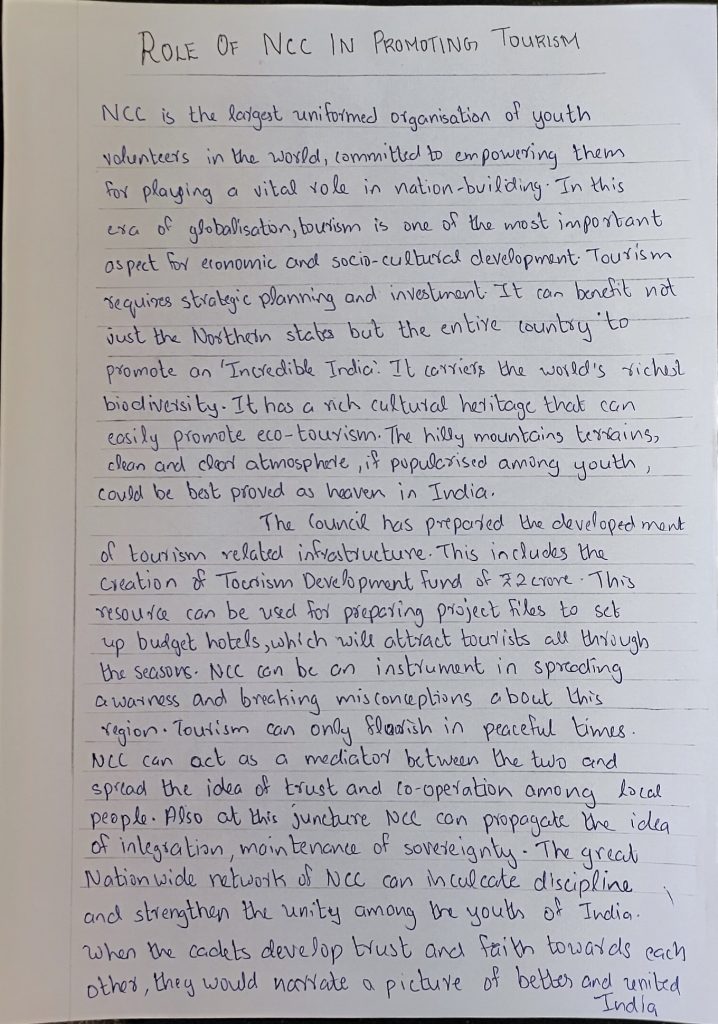 ROLE OF NCC IN PROMOTING TOURISM
NCC is the largest uniformed organisation of youth
volunteers in the world, committed to empowering them
for playing a vital role in nation-building. In this
era of globalisation, tourism is one of the most important
aspect for economic and socio-cultural development. Tourism
requires strategic planning and investment. It can benefit not
just the Northern states but the entire country to
promote an 'Incredible India'. It carriers the world's richest
biodiversity. It has a rich cultural heritage that can
easily promote eco-tourism. The hilly mountains terrains,
clean and clear atmosphere, if popularised among youth,
could be best proved as heaven in India.
The Council has prepared the developed ment
of tourism related infrastructure. This includes the
creation of Tourism Development fund of ₹2 crore. This
resource can be used for preparing project files to set
up budget hotels, which will attract tourists all through
the seasons. NCC can be an instrument in spreading
awarness and breaking misconceptions about this
region. Tourism can only flourish in peaceful times.
NCC can act as a mediator between the two and
spread the idea of trust and co-operation among local
people. Also at this juncture NCC can propagate the idea
of integration, maintenance of sovereignty. The great
Nation wide network of NCC can inculcate discipline
and strengthen the unity among the youth of India.
When the cadets develop trust and faith towards each
other, they would narrate a picture of better and united
India